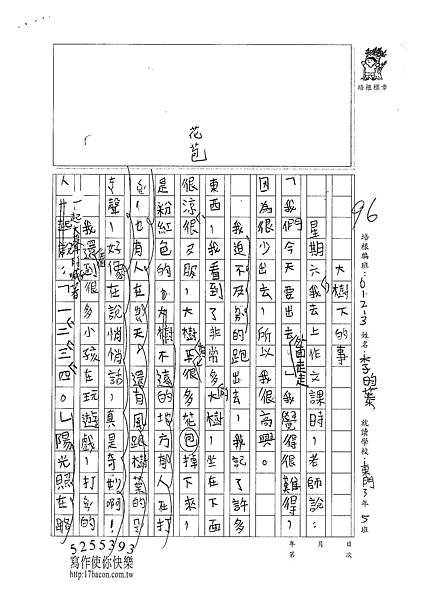 培根標章
96
培根班: 0123 姓名 就讀學校: 東門3年5班
年 月 日
第 次
花苞
大樹下的事
星期六我去上作文課時，老師說：
「我們今天要出去走走」我覺得很難得，
因為很少出去，所以我很高興。
我迫不及的跑出去，我記了許多
東西，我看到了非常多的大樹，坐在下面
很涼很又服，大樹很多花包掉下來，
是粉紅色的不遠的地方有人在打
也有人在聊天，還有風跟樹葉的
聲，好像在說悄悄話，真是奇妙啊！
我還看到很多小孩在玩遊戲，打的
人一起：「一二三四。」陽光照在腳
5255393
寫作使你快樂
http://17bacon.com.tw